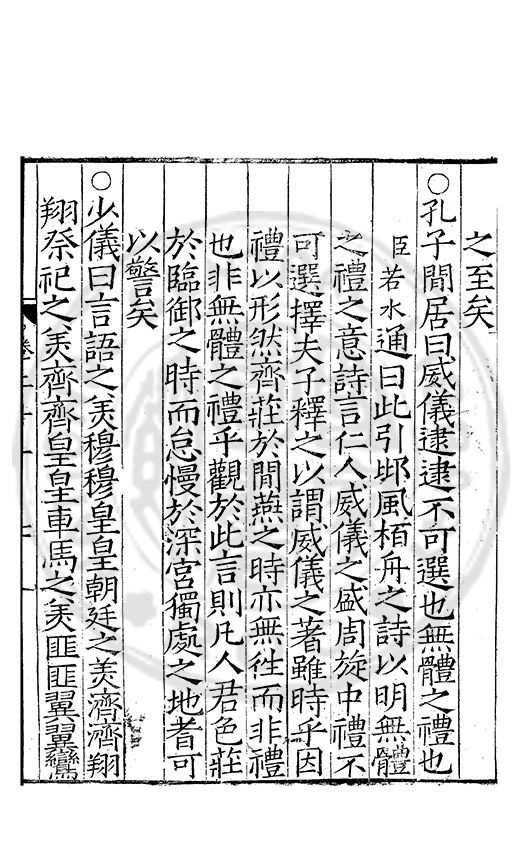 之至矣
○孔子閒居曰威儀逮逮不可選也無體之禮也
臣若水通曰此引邶風栢舟之詩以明無體
之禮之意詩言仁人威儀之盛周旋中禮不
可選擇夫子釋之以謂威儀之著雖時乎因
禮以形然齊莊於閒燕之時亦無徃而非禮
也非無體之禮乎觀於此言則凡人君色莊
於臨御之時而怠慢於深宮獨處之地者可
以警矣
○少儀曰言語之美穆穆皇皇朝廷之美濟濟翔
翔祭祀之美齊齊皇皇車馬之美匪匪翼翼鸞